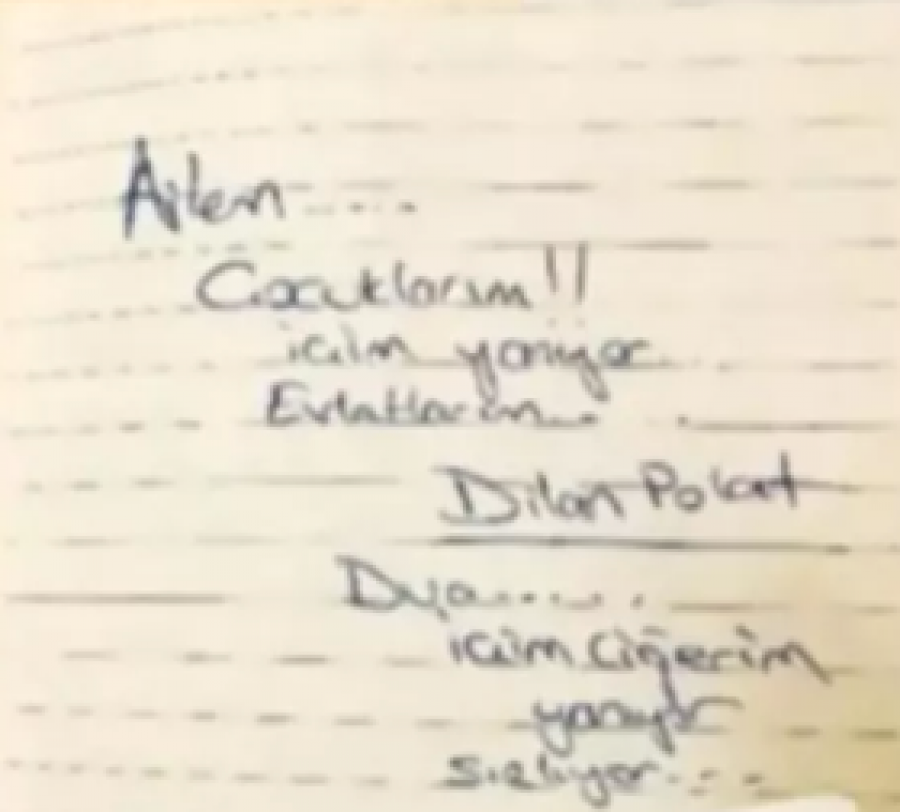 Ailem.....
Çocuklarım!!
içim yanıyor
Evlatlarım...
Dilan Polat
Dua......
içim Ciğerim
yanıyor
sızlıyor....